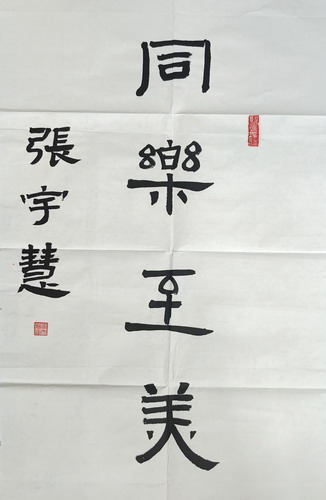 同樂至美
張宇慧